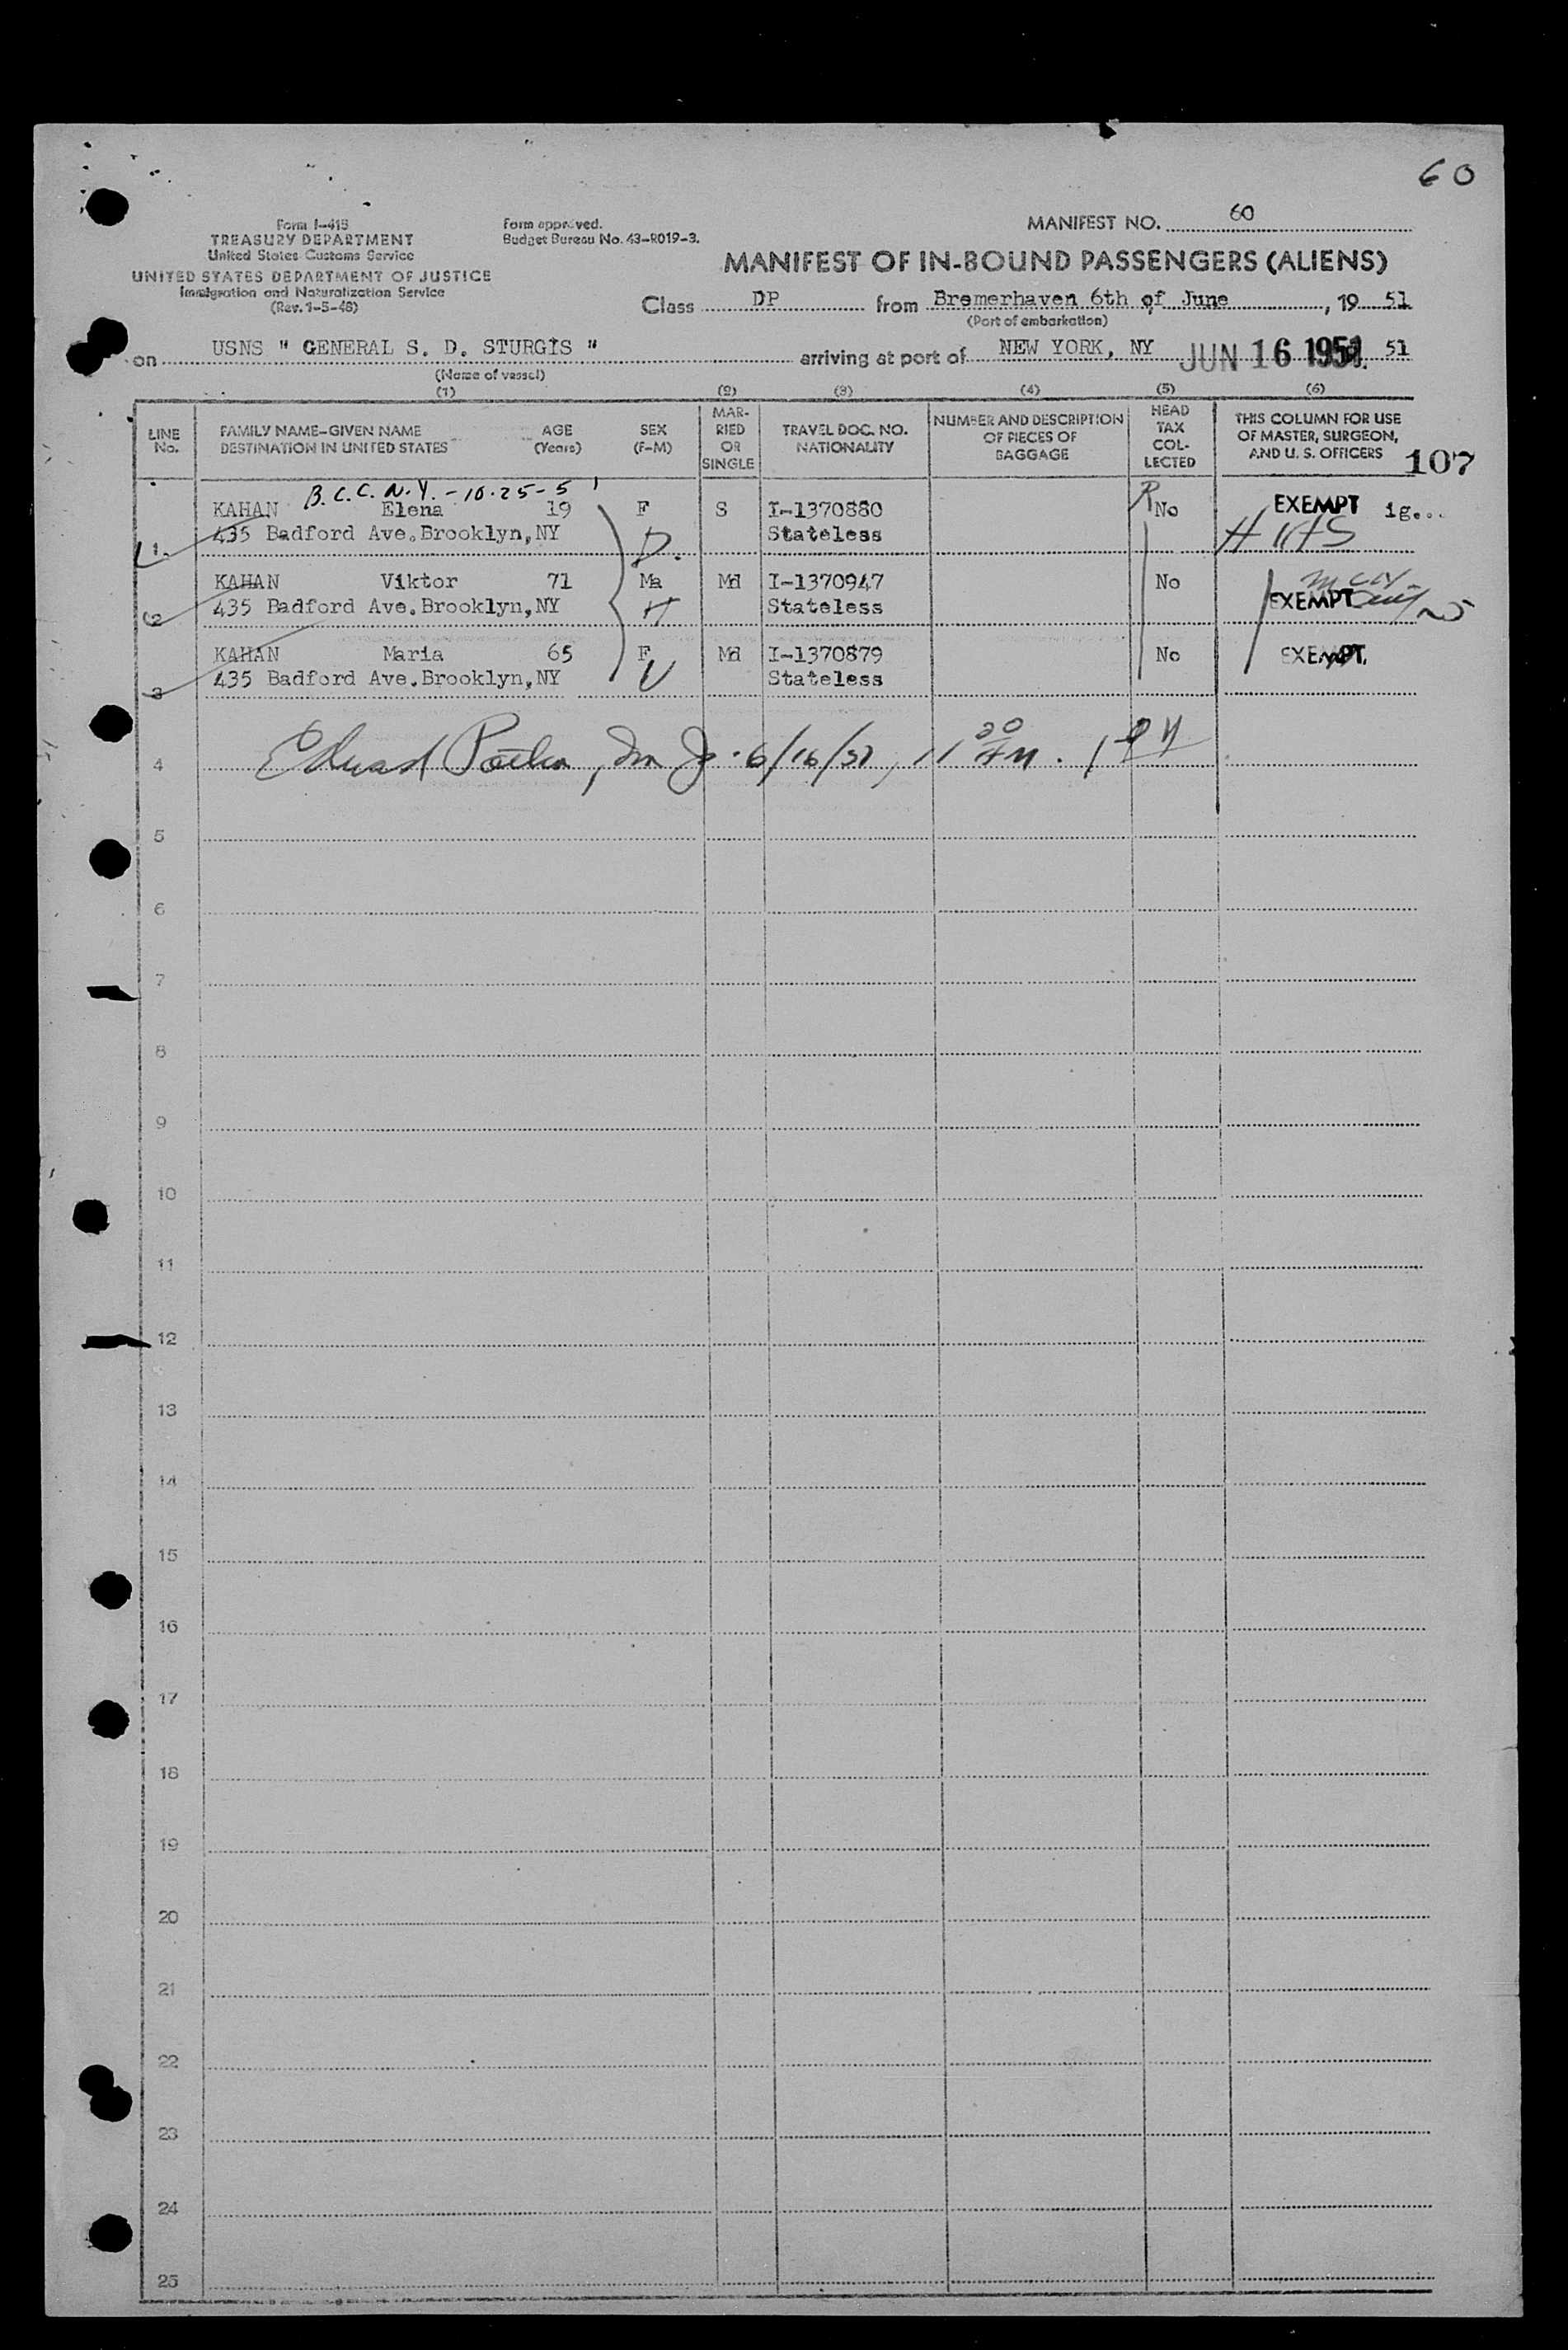 60
Form I-418
TREASURY DEPARTMENT
United States Customs Service
UNITED STATES DEPARTMENT OF JUSTICE
Immigration and Naturalization Service
(Rev. 1-5-48)
Form approved.
Budget Bureau No. 43-R019-3.
MANIFEST NO. 60
MANIFEST OF IN-BOUND PASSENGERS (ALIENS)
Class DP from Bremerhaven 6th of June, 19 51
(Port of embarkation)
on USNS " GENERAL S. D. STURGIS " arriving at port of NEW YORK, NY JUN 16 1951 51
(Name of vessel)
(1) (2) (3) (4) (5) (6)
LINE No. FAMILY NAME-GIVEN NAME DESTINATION IN UNITED STATES AGE (Years) SEX (F-M) MARRIED OR SINGLE TRAVEL DOC. NO. NATIONALITY NUMBER AND DESCRIPTION OF PIECES OF BAGGAGE HEAD TAX COLLECTED THIS COLUMN FOR USE OF MASTER, SURGEON, AND U. S. OFFICERS 107
B.C.C. N.Y. - 10-25-51
KAHAN Elena 19 F S I-1370880 R No EXEMPT ig...
1 435 Badford Ave.Brooklyn,NY D. Stateless HIAS
KAHAN Viktor 71 Ma Md I-1370947 No
2 435 Badford Ave.Brooklyn,NY H Stateless EXEMPT
KAHAN Maria 65 F Md I-1370879 No EXEMPT
3 435 Badford Ave.Brooklyn,NY W Stateless
4 6/16/51, 11 20 AM.
5
6
7
8
9
10
11
12
13
14
15
16
17
18
19
20
21
22
23
24
25